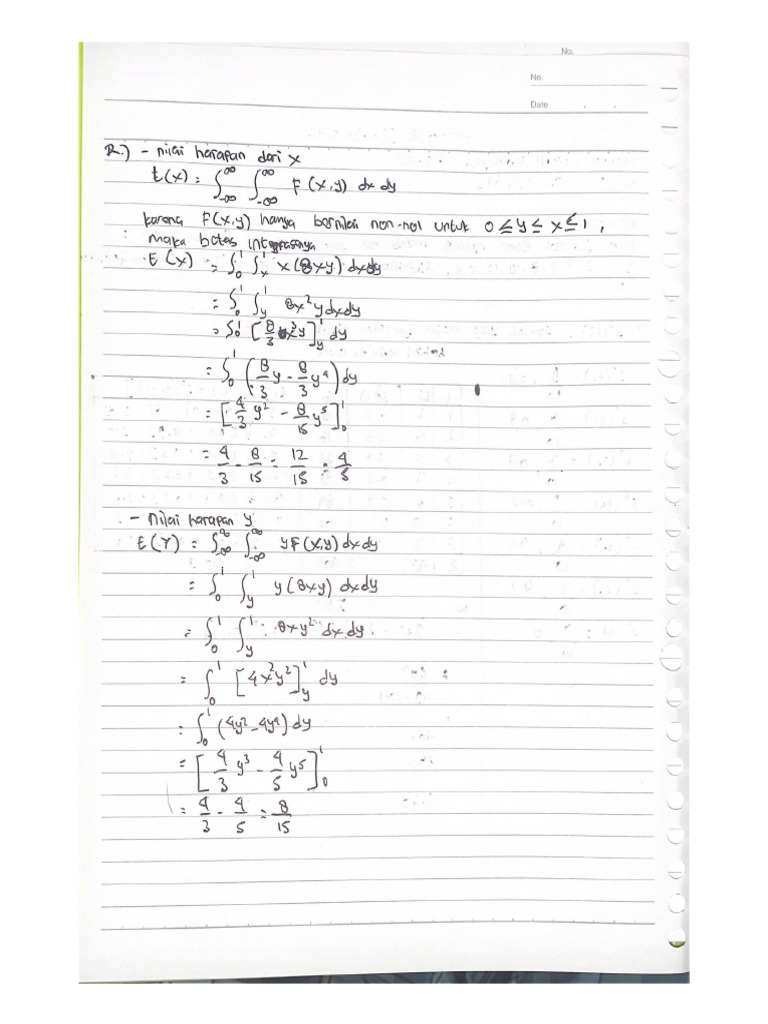 No.
No.
Date
2.) - nilai harapan dari x
E(x) = ∫_-∞^∞ ∫_-∞^∞ F(x,y) dx dy
karena F(x,y) hanya bernilai non-nol untuk 0 ≤ y ≤ x ≤ 1,
maka batas integrasinya
E(x) = ∫_0^1 ∫_x^1 x(8xy) dxdy
= ∫_0^1 ∫_y^1 8x²y dxdy
= ∫_0^1 [8/3 x³y]_y^1 dy
= ∫_0^1 (8/3 y - 8/3 y⁴) dy
= [4/3 y² - 8/15 y⁵]_0^1
= 4/3 - 8/15 = 12/15 = 4/5
- nilai harapan y
E(Y) = ∫_-∞^∞ ∫_-∞^∞ yF(x,y) dxdy
= ∫_0^1 ∫_y^1 y(8xy) dxdy
= ∫_0^1 ∫_y^1 8xy² dxdy
= ∫_0^1 [4x²y²]_y^1 dy
= ∫_0^1 (4y² - 4y⁴) dy
= [4/3 y³ - 4/5 y⁵]_0^1
= 4/3 - 4/5 = 8/15